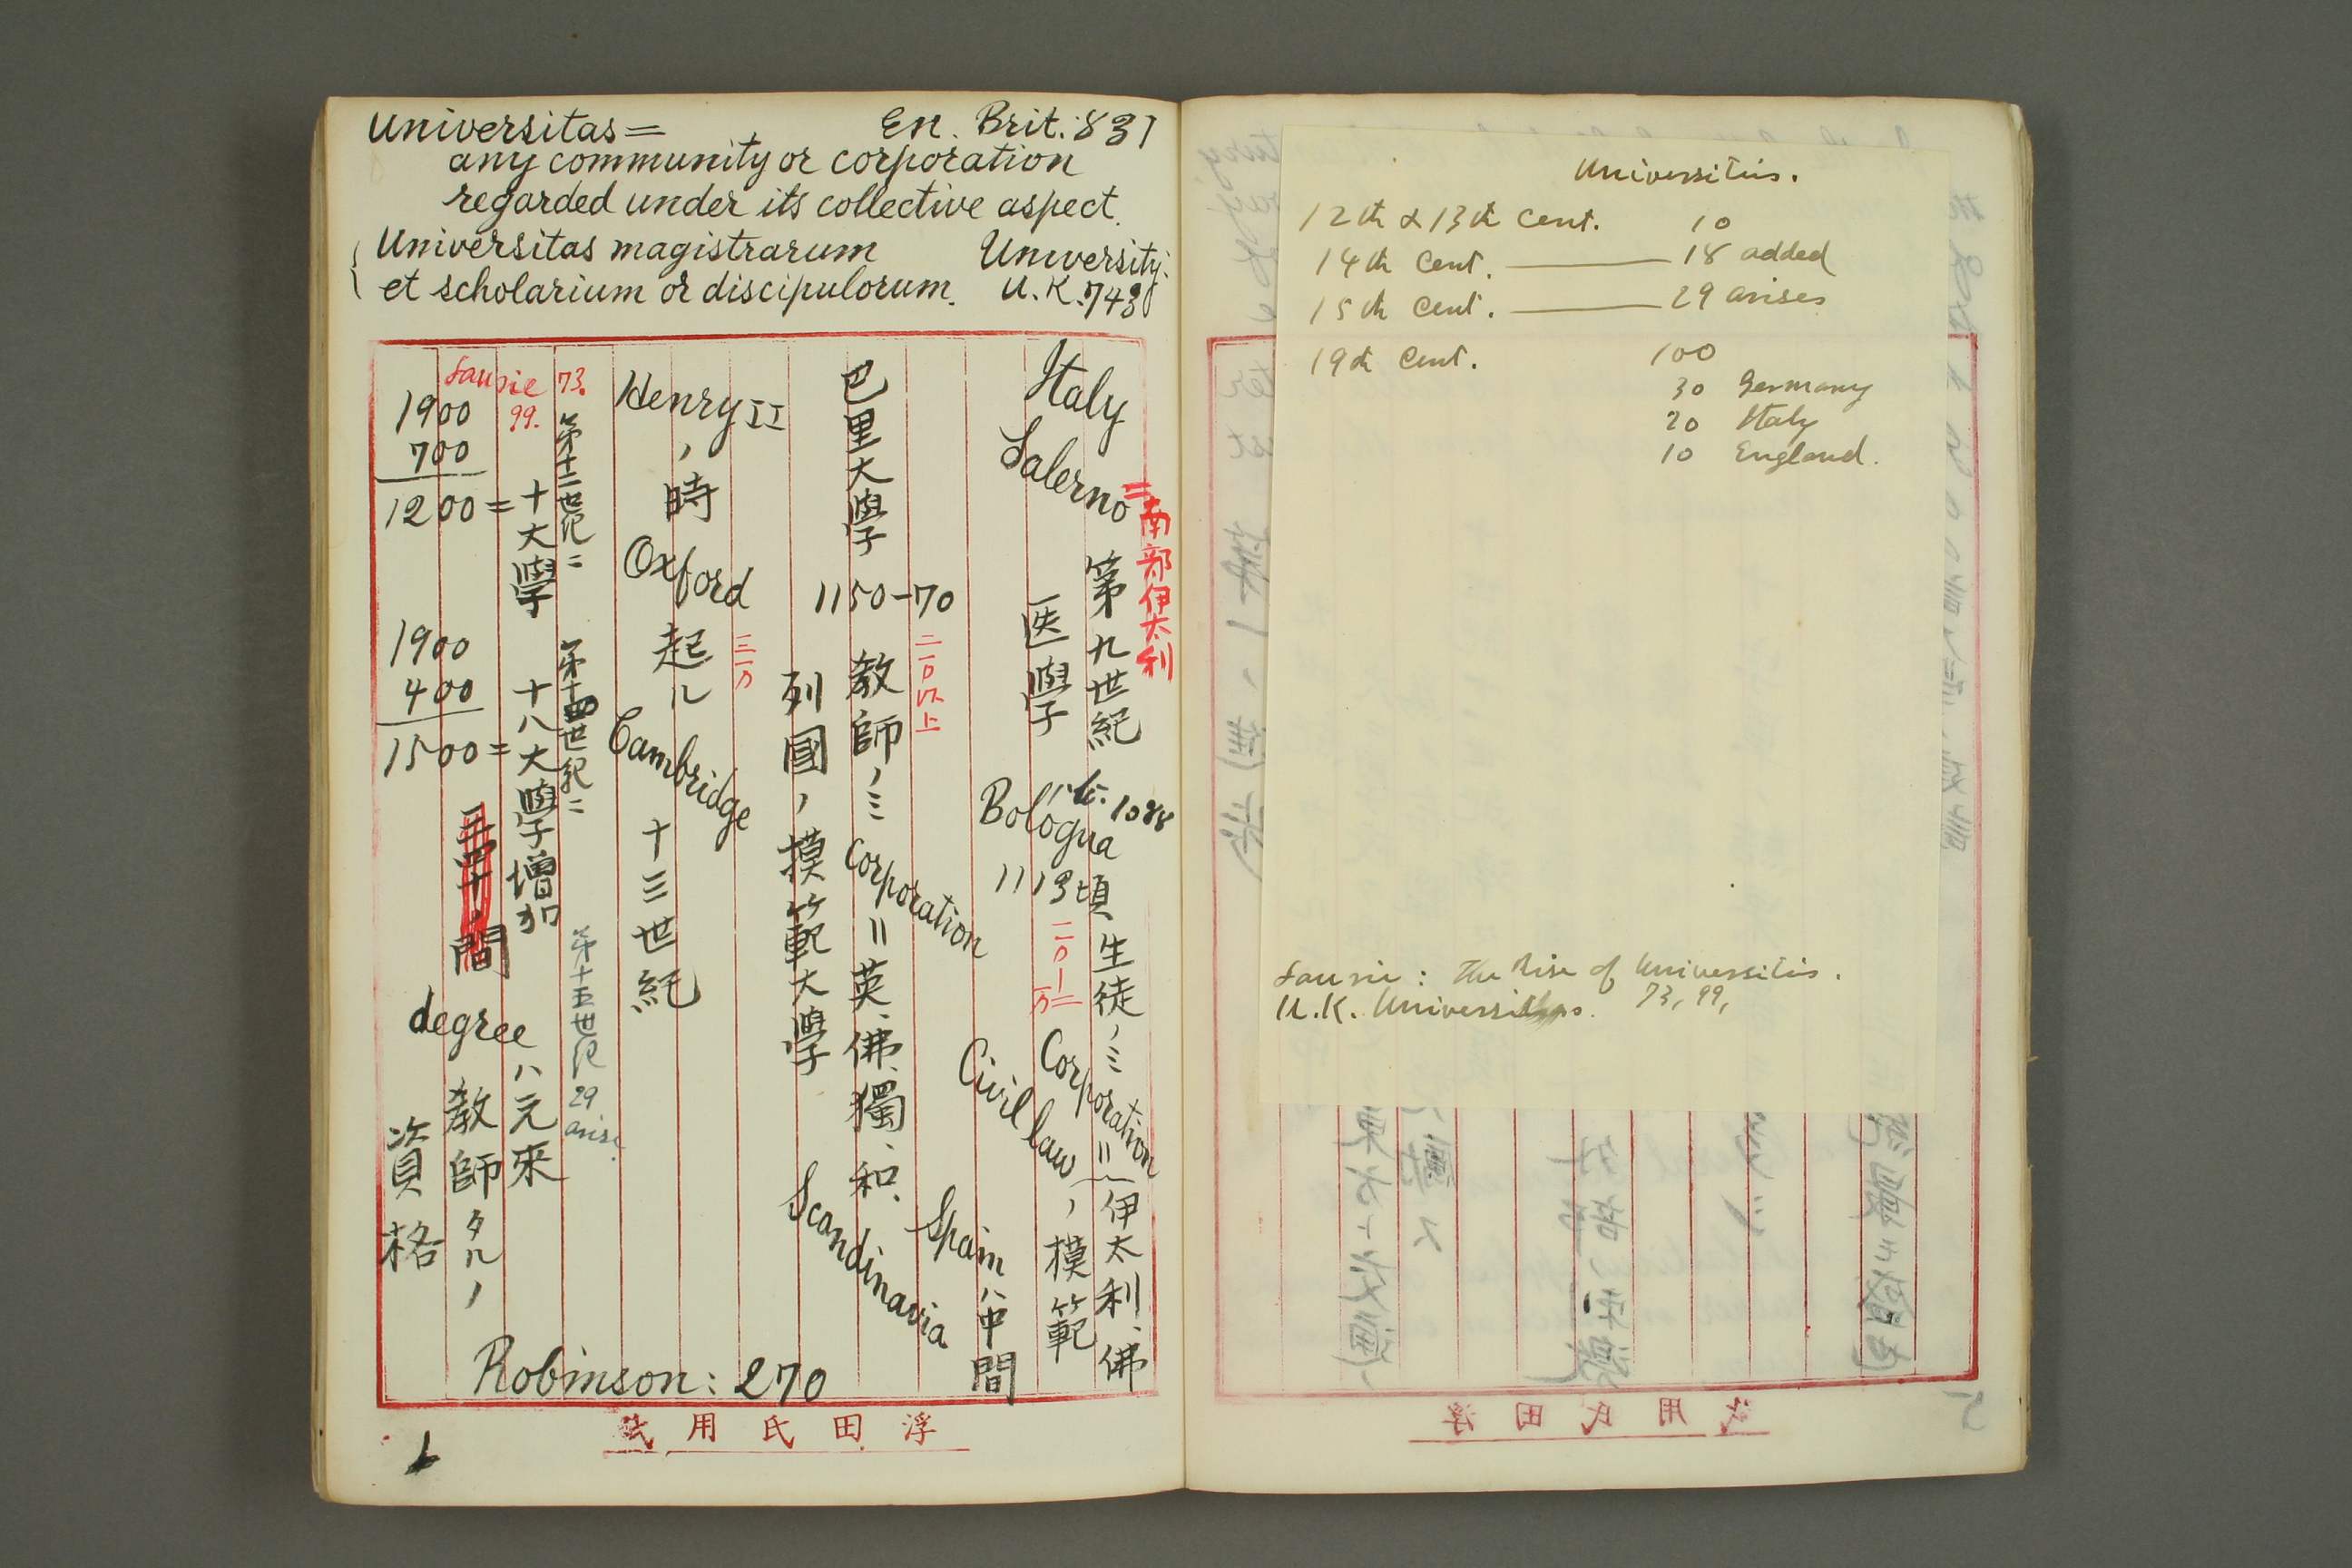 Universitas = En. Brit. 831
any community or corporation
regarded under its collective aspect.
Universitas magistrarum University.
et scholarium or discipulorum. U.K. 743
Italy
Salerno
=南部伊太利
第九世紀
医學
Bologna
1088
1113頃
生徒ノミ Corporation = 伊太利、佛
Civil law ノ模範
Spain ハ中間
巴里大學
1150-70
二万以上
教師ノミ Corporation = 英、佛、獨、和、
Scandinavia
列國ノ摸範大學
三万
Henry II
ノ時
Oxford
起ル
Cambridge
十三世紀
Laurie 73.
99.
第十二世紀ニ
第十四世紀ニ
第十五世紀 29 arise.
1900
700
1200 = 十大學
1900
400
1500 = 十八大學増加
間
degree ハ元來
教師タルノ
資格
Robinson: 270
浮田氏用
Universities.
12th & 13th Cent. 10
14th Cent. 18 added
15th Cent. 29 arises
19th Cent. 100
30 Germany
20 Italy
10 England.
Laurie: The Rise of Universities.
U.K. Universities. 73, 99,